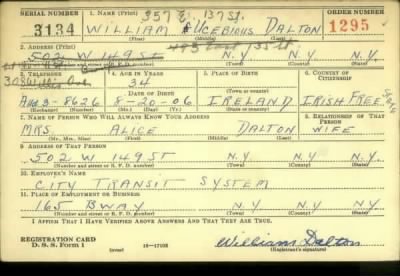 SERIAL NUMBER 1. NAME (Print) 357 E. 137 St. ORDER NUMBER
3134 WILLIAM EUCEBIOUS DALTON 1295
(First) (Middle) (Last)
2. ADDRESS (Print)
502 W 149 ST N.Y. N.Y. N.Y.
(Number and street or R. F. D. number) (Town) (County) (State)
3. TELEPHONE 4. AGE IN YEARS 5. PLACE OF BIRTH 6. COUNTRY OF CITIZENSHIP
34
DATE OF BIRTH
3-8626 8-20-06 IRELAND IRISH FREE STATE
(Exchange) (Number) (Mo.) (Day) (Yr.) (State or country)
7. NAME OF PERSON WHO WILL ALWAYS KNOW YOUR ADDRESS 8. RELATIONSHIP OF THAT PERSON
MRS. ALICE DALTON WIFE
(Mr., Mrs., Miss) (First) (Middle) (Last)
9. ADDRESS OF THAT PERSON
502 W 149 ST N.Y. N.Y. N.Y.
(Number and street or R. F. D. number) (Town) (County) (State)
10. EMPLOYER'S NAME
CITY TRANSIT SYSTEM
11. PLACE OF EMPLOYMENT OR BUSINESS
165 BWAY N.Y. N.Y. N.Y.
(Number and street or R. F. D. number) (Town) (County) (State)
I AFFIRM THAT I HAVE VERIFIED ABOVE ANSWERS AND THAT THEY ARE TRUE.
REGISTRATION CARD
D. S. S. Form 1 (over) 16-17105 William Dalton
(Registrant's signature)